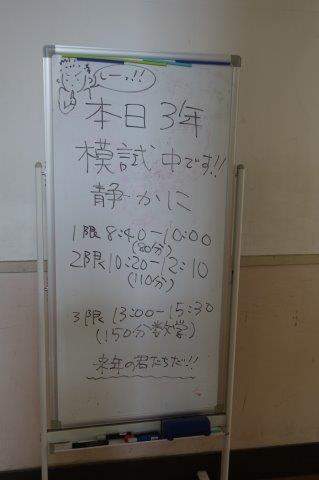 しーっ!!
本日3年
模試中です!!
静かに
1限 8:40-10:00
(80分)
2限 10:20-12:10
(110分)
3限 13:00-15:30
(150分数学)
来年の君たちだ!!